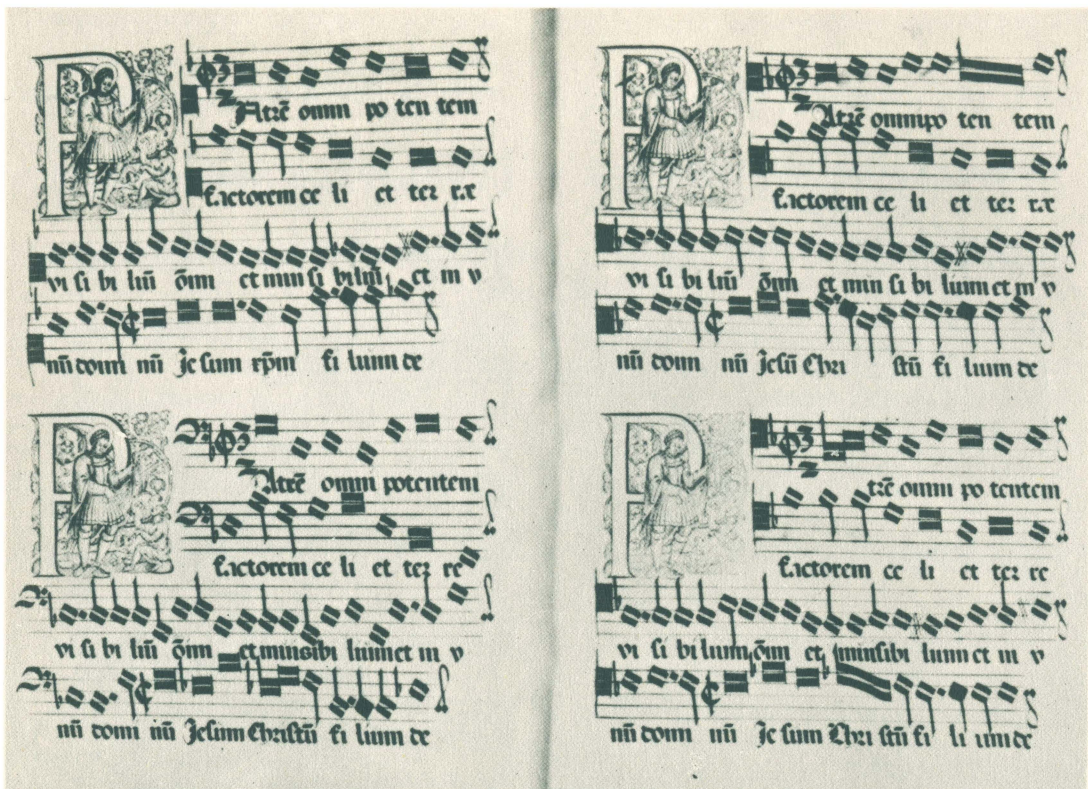 PAtrē omni po ten tem
factorem ce li et ter re
vi si bi liū om̄ et in vi si bi liū et in v
nū domi nū Je sum xp̄m fi lium de
PAtrē omni potentem
factorem ce li et ter re
vi si bi liū om̄ et invisibi lium et in v
nū domi nū Jesum Christū fi lium de
PAtrē omnipo ten tem
factorem ce li et ter re
vi si bi liū om̄ et in vi si bi lium et in v
nū domi nū Jesū Chri stū fi lium de
P trē omni po tentem
factorem ce li et ter re
vi si bi lium om̄ et invisibi lium et in v
nū domi nū Je sum Chri stū fi li um de